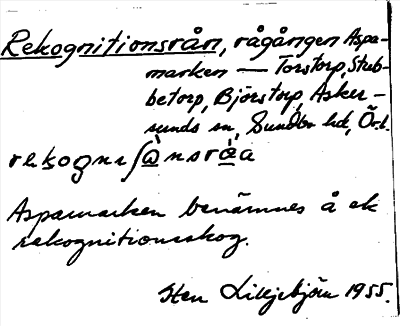 Rekognitionsrån, rågången Aspa-
marken — Torstorp, Stub-
betorp, Björstorp, Asker-
sunds sn, Sundbo hd, Ör.l.
Aspamarken benämnes å ek
rekognitionsskog.
Sten Lilljebjörn 1955.